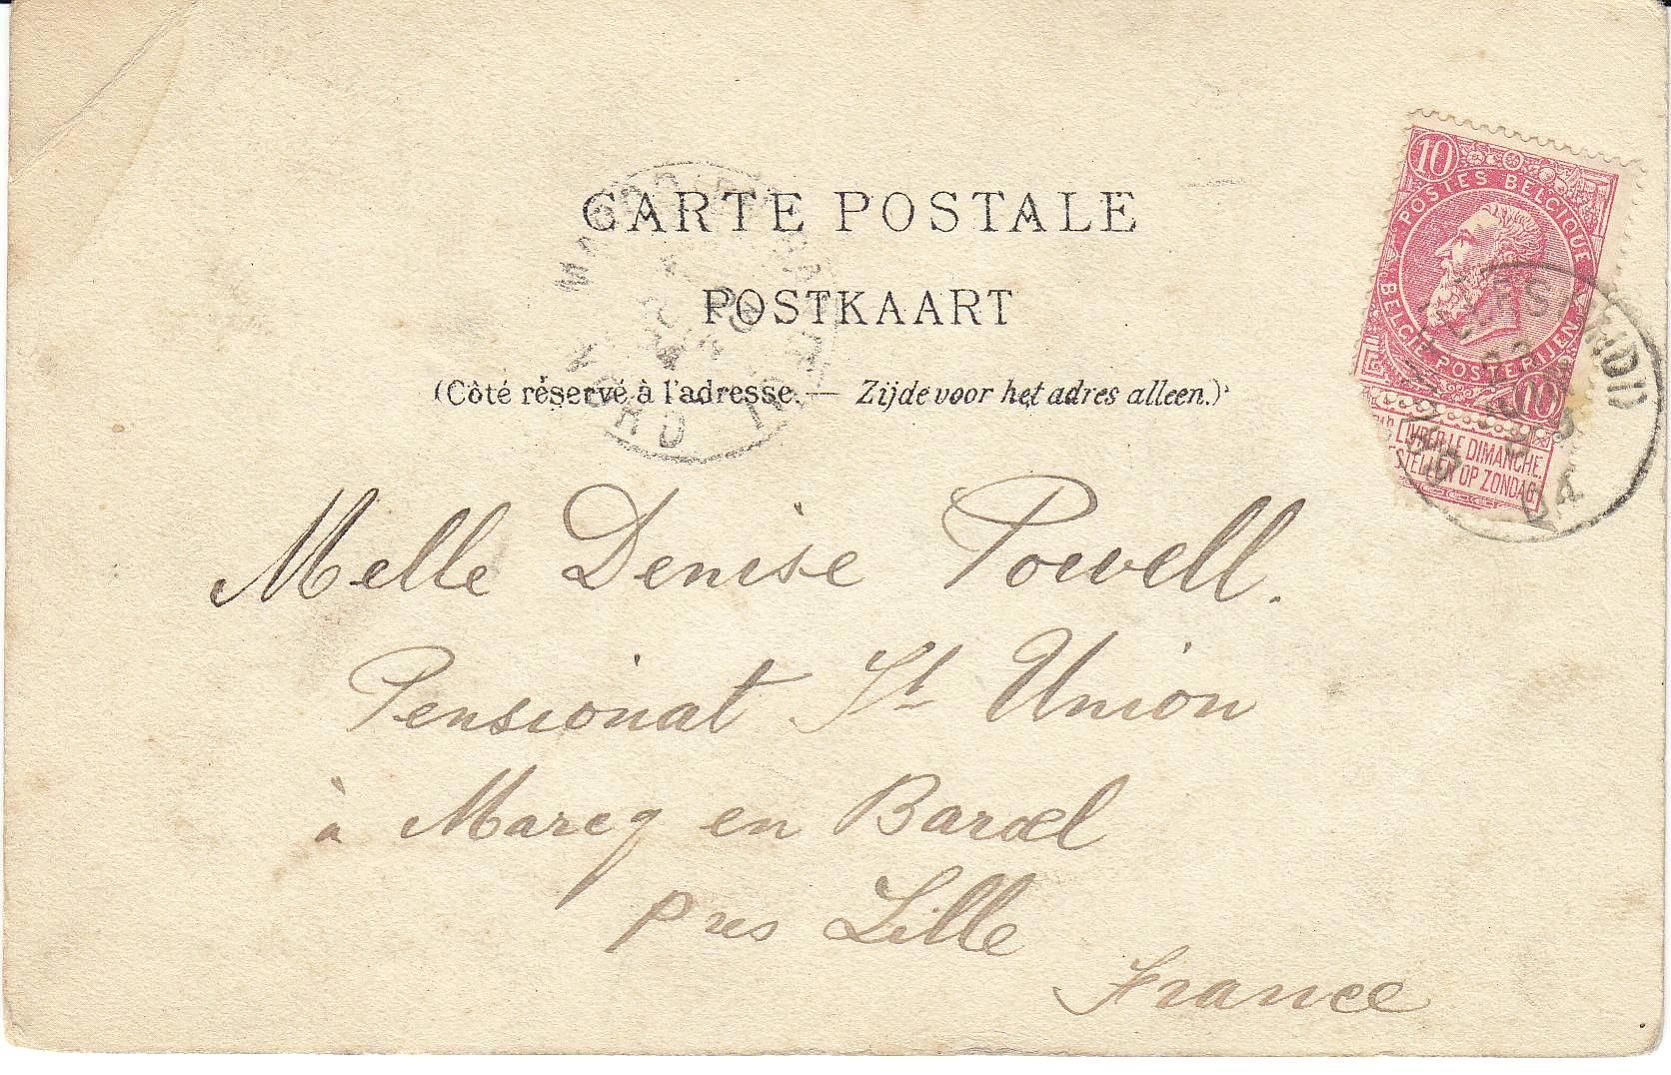 CARTE POSTALE
POSTKAART
(Côté réservé à l'adresse. — Zijde voor het adres alleen.)
10
POSTES BELGIQUE
BELGIE POSTERIJEN
10
LIVRER LE DIMANCHE
BESTELLEN OP ZONDAG
Melle Denise Powell.
Pensionat St Union
à Marcq en Barœl
pres Lille
France